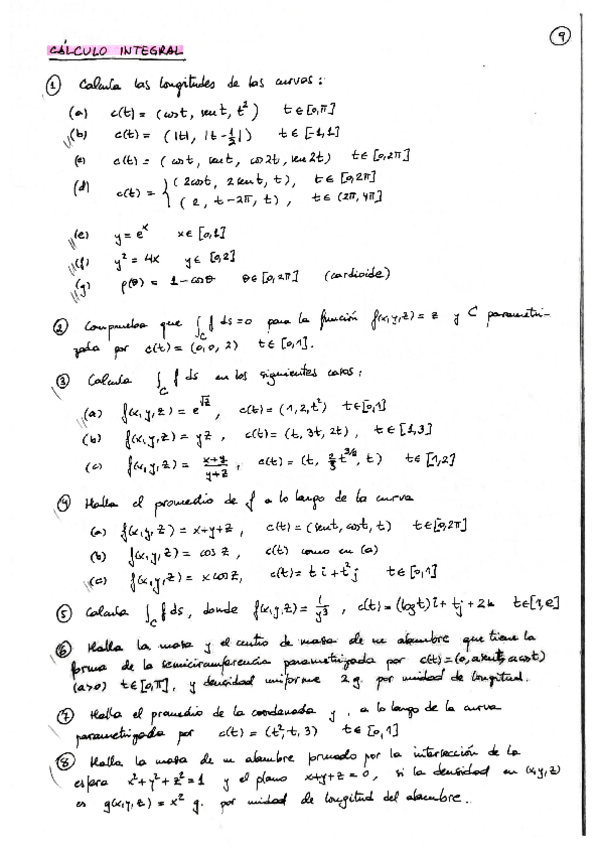 9
CÁLCULO INTEGRAL
① Calcula las longitudes de las curvas:
(a) c(t) = (cost, sent, t²) t∈[0,π]
(b) c(t) = (|t|, |t-1/2|) t∈[-1,1]
(c) c(t) = (cost, sent, cos2t, sen2t) t∈[0,2π]
(d) c(t) = { (2cost, 2sent, t), t∈[0,2π]
(2, t-2π, t), t∈(2π,4π]
(e) y = eˣ x∈[0,1]
(f) y² = 4x y∈[0,2]
(g) ρ(θ) = 1-cosθ θ∈[0,2π] (cardioide)
② Comprueba que ∫_C f ds=0 para la función f(x,y,z)=z y C parametri-
zada por c(t)=(0,0,2) t∈[0,1].
③ Calcula ∫_C f ds en los siguientes casos:
(a) f(x,y,z) = e^√z, c(t)=(1,2,t²) t∈[0,1]
(b) f(x,y,z) = yz, c(t)=(t,3t,2t), t∈[1,3]
(c) f(x,y,z) = (x+y)/(y+z), c(t)=(t, 2/3 t^3/2, t) t∈[1,2]
④ Halla el promedio de f a lo largo de la curva
(a) f(x,y,z) = x+y+z, c(t)=(sent, cost, t) t∈[0,2π]
(b) f(x,y,z) = cos z, c(t) como en (a)
(c) f(x,y,z) = x cosz, c(t)= t i + t² j t∈[0,1]
⑤ Calcula ∫_C f ds, donde f(x,y,z)=1/y³, c(t)=(logt)i+tj+2k t∈[1,e]
⑥ Halla la masa y el centro de masa de un alambre que tiene la
forma de la semicircunferencia parametrizada por c(t)=(0,asent,acost)
(a>0) t∈[0,π], y densidad uniforme 2 g. por unidad de longitud.
⑦ Halla el promedio de la coordenada y, a lo largo de la curva
parametrizada por c(t)=(t²,t,3) t∈[0,1]
⑧ Halla la masa de un alambre formado por la intersección de la
esfera x²+y²+z²=1 y el plano x+y+z=0, si la densidad en (x,y,z)
es g(x,y,z)=x² g. por unidad de longitud del alambre.